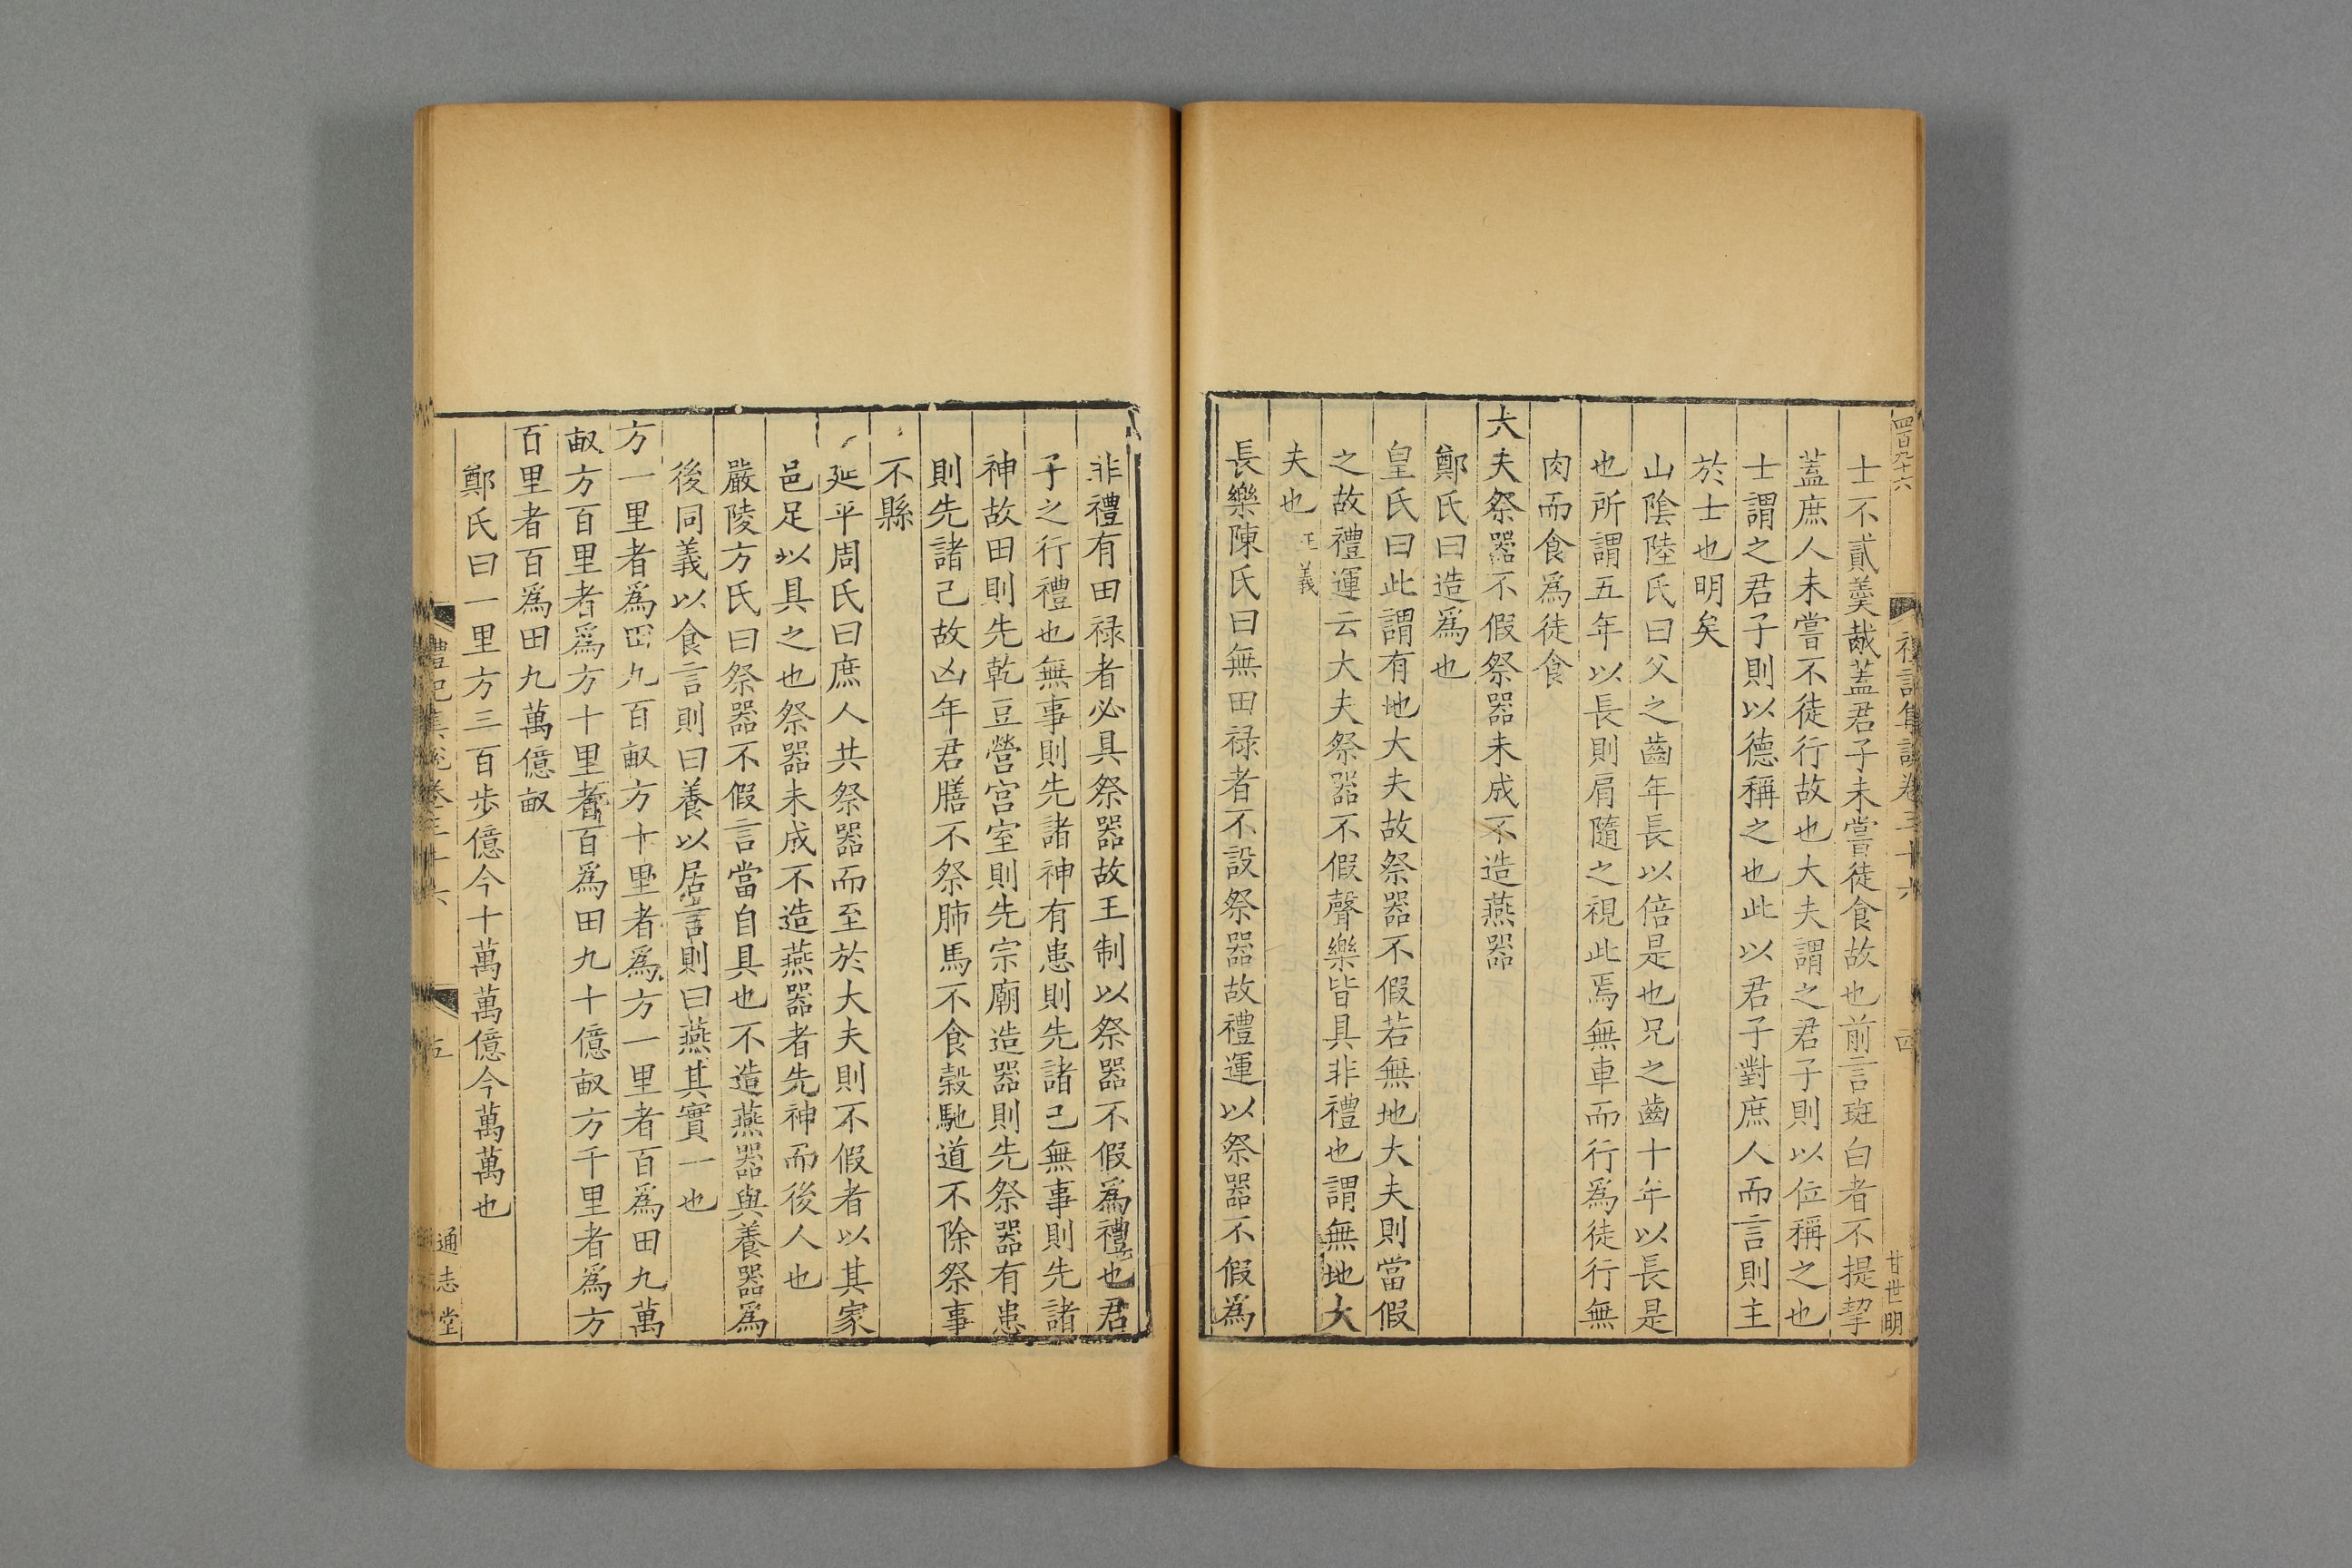 四百九十六
禮記集說卷三十六
四
甘世明
士不貳羹胾蓋君子未嘗徒食故也前言斑白者不提挈
蓋庶人未嘗不徒行故也大夫謂之君子則以位稱之也
士謂之君子則以德稱之也此以君子對庶人而言則主
於士也明矣
山陰陸氏曰父之齒年長以倍是也兄之齒十年以長是
也所謂五年以長則肩隨之視此焉無車而行爲徒行無
肉而食爲徒食
大夫祭器不假祭器未成不造燕器
鄭氏曰造爲也
皇氏曰此謂有地大夫故祭器不假若無地大夫則當假
之故禮運云大夫祭器不假聲樂皆具非禮也謂無地大
夫也正義
長樂陳氏曰無田祿者不設祭器故禮運以祭器不假爲
非禮有田祿者必具祭器故王制以祭器不假爲禮也君
子之行禮也無事則先諸神有患則先諸己無事則先諸
神故田則先乾豆營宮室則先宗廟造器則先祭器有患
則先諸己故凶年君膳不祭肺馬不食穀馳道不除祭事
不縣
延平周氏曰庶人共祭器而至於大夫則不假者以其家
邑足以具之也祭器未成不造燕器者先神而後人也
嚴陵方氏曰祭器不假言當自具也不造燕器與養器爲
後同義以食言則曰養以居言則曰燕其實一也
方一里者爲田九百畝方十里者爲方一里者百爲田九萬
畝方百里者爲方十里者百爲田九十億畝方千里者爲方
百里者百爲田九萬億畝
鄭氏曰一里方三百步億今十萬萬億今萬萬也
禮記集說卷三十六
五
通志堂